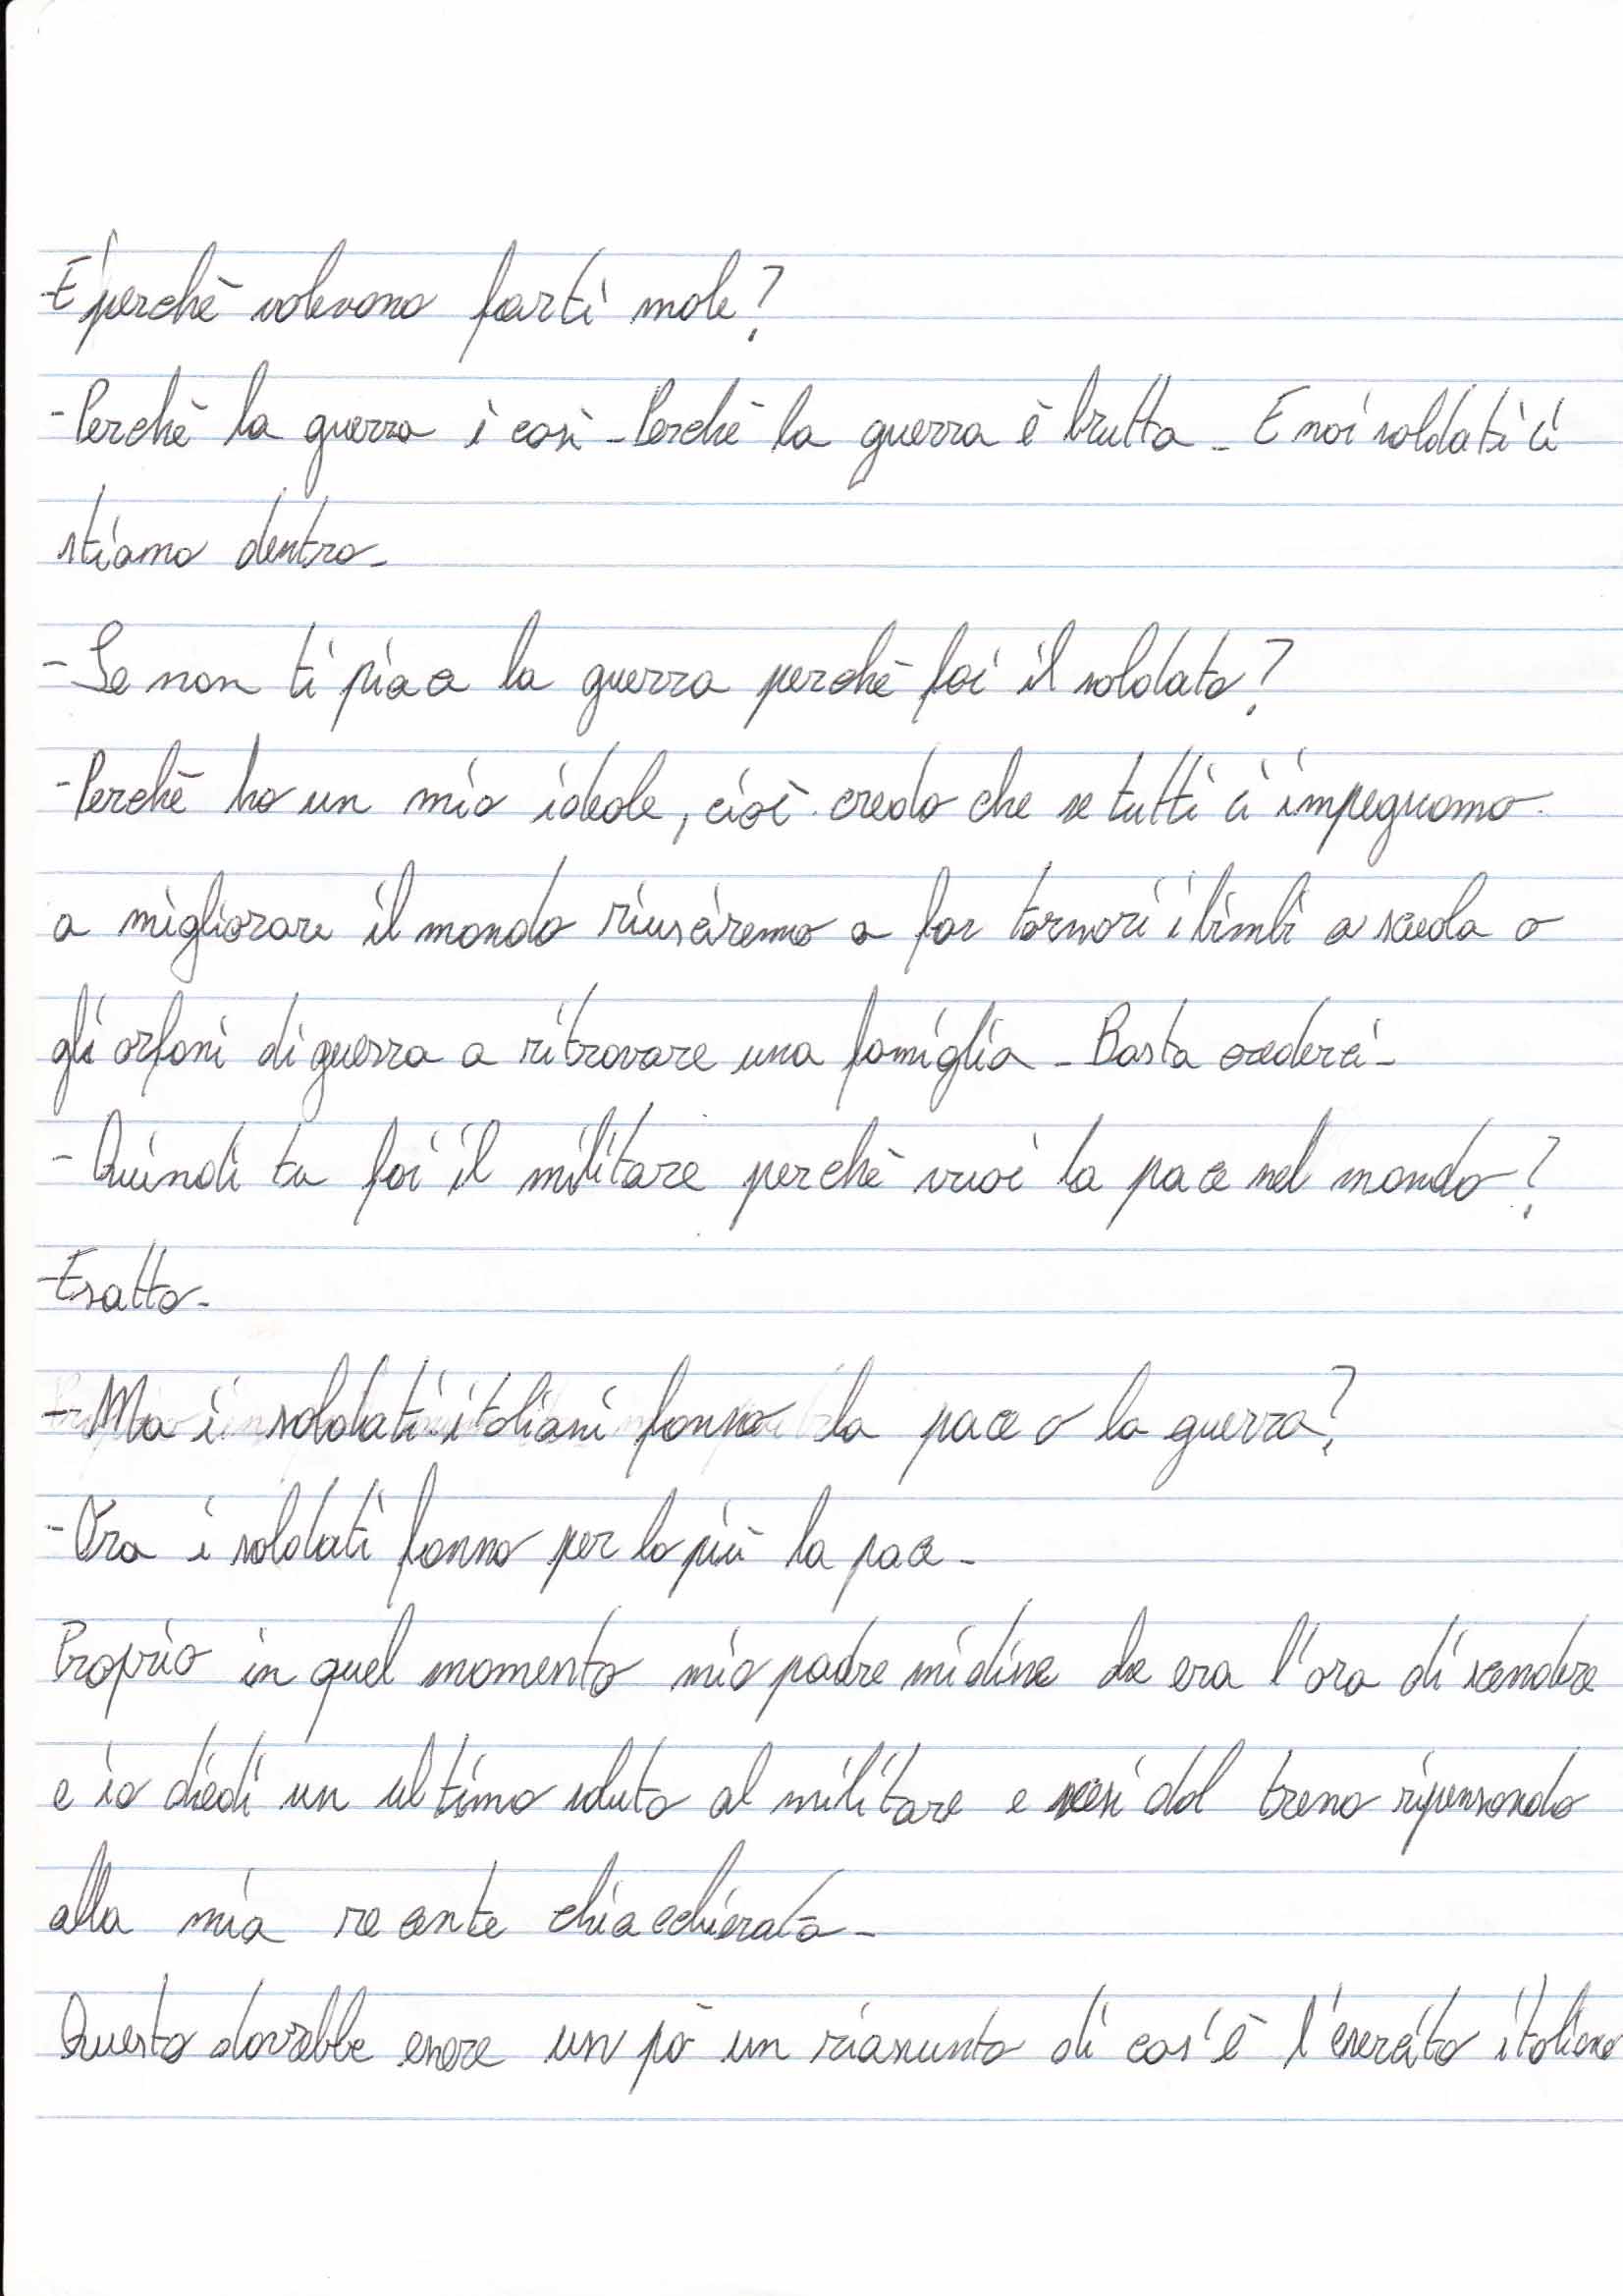 -E perchè volevano farti male?
-Perchè la guerra è così. Perchè la guerra è brutta. E noi soldati ci
stiamo dentro.
-Se non ti piace la guerra perchè fai il soldato?
-Perchè ho un mio ideale, cioè credo che se tutti ci impegnamo
a migliorare il mondo riusciremo a far tornari i bimbi a scuola o
gli orfani di guerra a ritrovare una famiglia. Basta crederci.
-Quindi tu fai il militare perchè vuoi la pace nel mondo?
-Esatto.
-Ma i soldati italiani fanno la pace o la guerra?
-Ora i soldati fanno per lo più la pace.
Proprio in quel momento mio padre mi disse che era l'ora di scendere
e io diedi un ultimo saluto al militare e scesi dal treno ripensando
alla mia recente chiacchierata.
Questo dovrebbe essere un pò un riassunto di cos'è l'esercito italiano